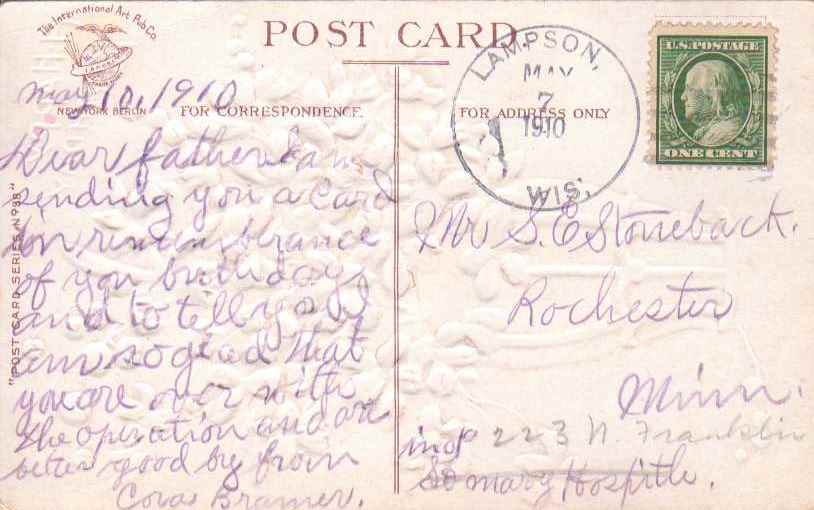 The International Art Pub Co.
NEW YORK BERLIN
POST CARD
FOR CORRESPONDENCE
FOR ADDRESS ONLY
LAMPSON,
MAY
7
1910
WIS.
U.S. POSTAGE
ONE CENT
"POST CARD SERIES N 938"
May 10, 1910
Dear father I am
sending you a Card
on rememberance
of you birthday
and to tell you I
am so glad that
you are over with
the operation and are
better good by from
Cora Bramer.
Mr S. E Stoneback.
Rochester
Minn.
223 N. Franklin
St mary Hospitle.